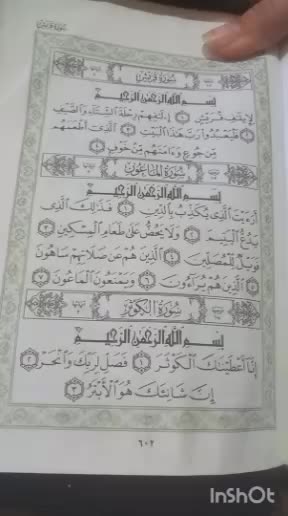 سُورَةُ قُرَيْشٍ
بِسْمِ اللَّهِ الرَّحْمَٰنِ الرَّحِيمِ
لِإِيلَٰفِ قُرَيْشٍ ١ إِۦلَٰفِهِمْ رِحْلَةَ الشِّتَآءِ وَالصَّيْفِ
٢ فَلْيَعْبُدُوا۟ رَبَّ هَٰذَا الْبَيْتِ ٣ الَّذِىٓ أَطْعَمَهُم
مِّن جُوعٍ وَءَامَنَهُم مِّنْ خَوْفٍۭ ٤
سُورَةُ الْمَاعُونِ
بِسْمِ اللَّهِ الرَّحْمَٰنِ الرَّحِيمِ
أَرَءَيْتَ الَّذِى يُكَذِّبُ بِالدِّينِ ١ فَذَٰلِكَ الَّذِى
يَدُعُّ الْيَتِيمَ ٢ وَلَا يَحُضُّ عَلَىٰ طَعَامِ الْمِسْكِينِ ٣
فَوَيْلٌ لِّلْمُصَلِّينَ ٤ الَّذِينَ هُمْ عَن صَلَاتِهِمْ سَاهُونَ
٥ الَّذِينَ هُمْ يُرَآءُونَ ٦ وَيَمْنَعُونَ الْمَاعُونَ ٧
سُورَةُ الْكَوْثَرِ
بِسْمِ اللَّهِ الرَّحْمَٰنِ الرَّحِيمِ
إِنَّآ أَعْطَيْنَٰكَ الْكَوْثَرَ ١ فَصَلِّ لِرَبِّكَ وَانْحَرْ ٢
إِنَّ شَانِئَكَ هُوَ الْأَبْتَرُ ٣
٦٠٢
InShOt